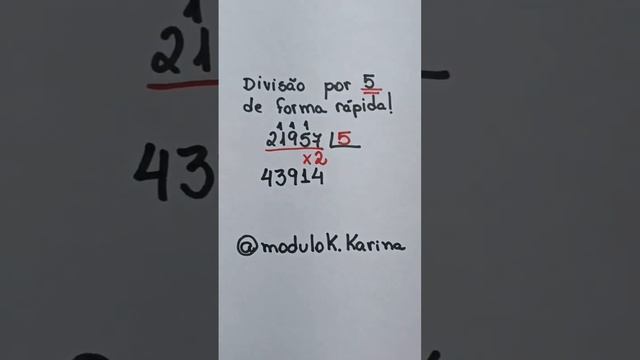 Divisão por 5
de forma rápida!
1 1 1
21957 5
x2
43914
@moduloK.Karina